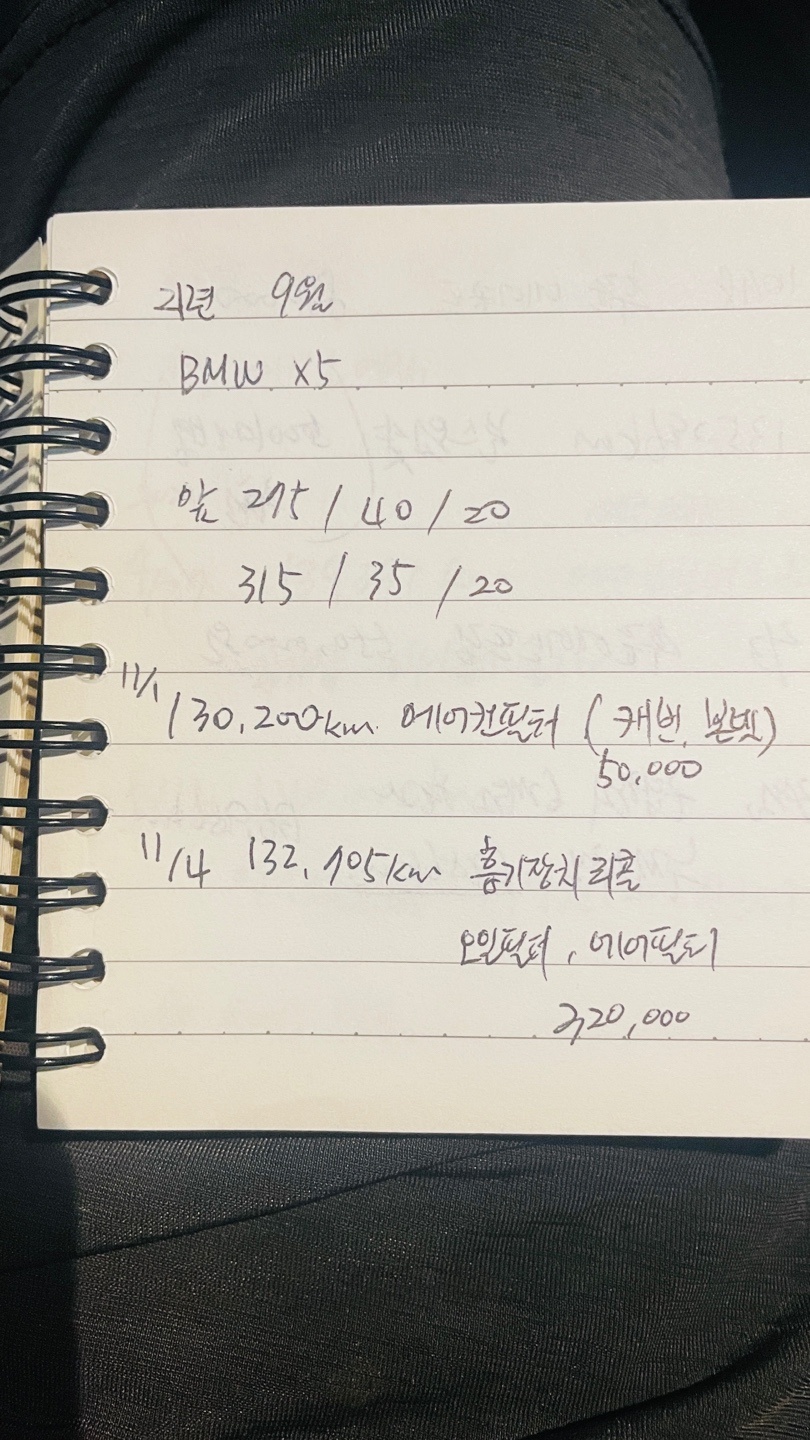 21년 9월
BMW X5
앞 275 / 40 / 20
315 / 35 / 20
11/1
130,200km 에어컨필터 (캐빈, 본넷)
50,000
11/4 132,705km 흡기장치 리콜
오일필터, 에어필터
220,000